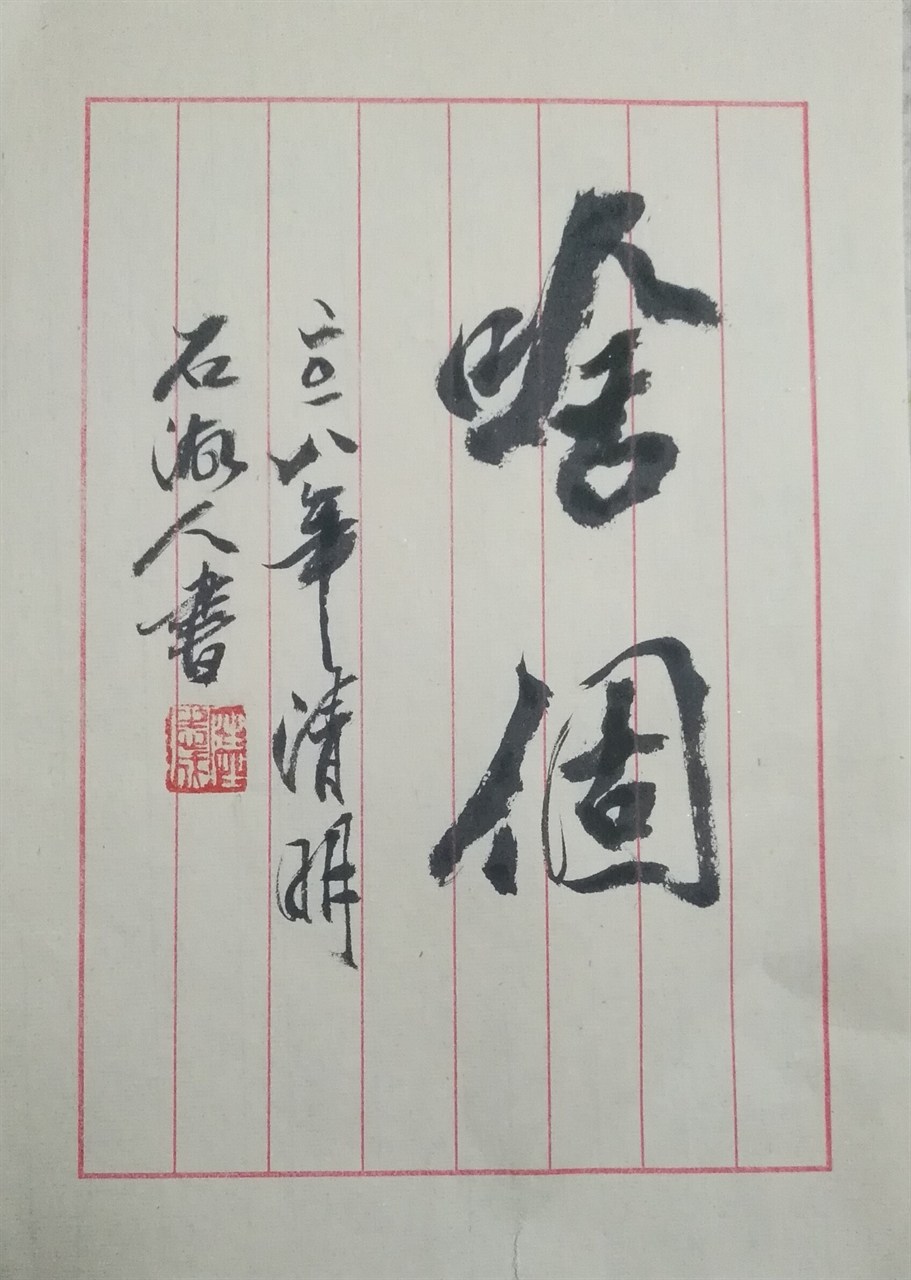 啥個
二〇一八年清明
石海人書